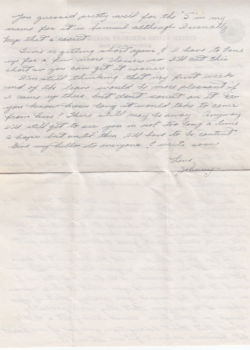 You guessed pretty well for the "S" in my
name for it is Samuel although I usually
keep that a secret.
Time is getting short again, & I have to line
up for a few more classes so I'll cut this
short so you can get it sooner.
I'm still thinking that my first week
end of the leave would be more pleasant if
you know how long it would take to come
from here! There still may be away. Anyway
I'll still get to see you in not too long a time
I hope but until then I'll have to be content.
Give my hello to everyone & write soon.
Love
Johnny